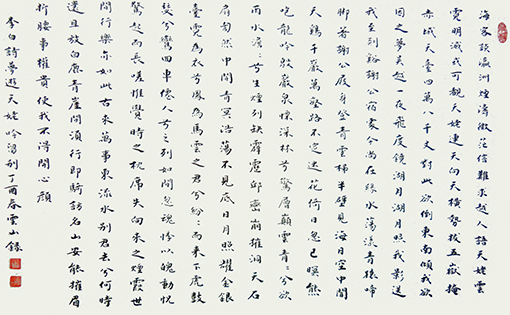 海客談瀛洲煙濤微茫信難求越人語天姥雲
霓明滅或可覩天姥連天向天橫勢拔五嶽掩
赤城天臺四萬八千丈對此欲倒東南傾我欲
因之夢吳越一夜飛度鏡湖月湖月照我影送
我至剡谿謝公宿處今尚在綠水蕩漾清猿啼
腳著謝公屐身登青雲梯半壁見海日空中聞
天鷄千巖萬壑路不定迷花倚石忽已暝熊
咆龍吟殷巖泉慄深林兮驚層巔雲青〻兮欲
雨水澹〻兮生煙列缺霹靂邱巒崩摧洞天石
扉訇然中開青冥浩蕩不見底日月照耀金銀
臺霓為衣兮風為馬雲之君兮紛〻而來下虎鼓
瑟兮鸞回車仙之人兮列如麻忽魂悸以魄動怳
驚起而長嗟惟覺時之枕席失向來之煙霞世
間行樂亦如此古來萬事東流水別君去兮何時
還且放白鹿青崖間須行即騎訪名山安能摧眉
折腰事權貴使我不得開心顏
李白詩夢遊天姥吟留別丁酉春雲山錄